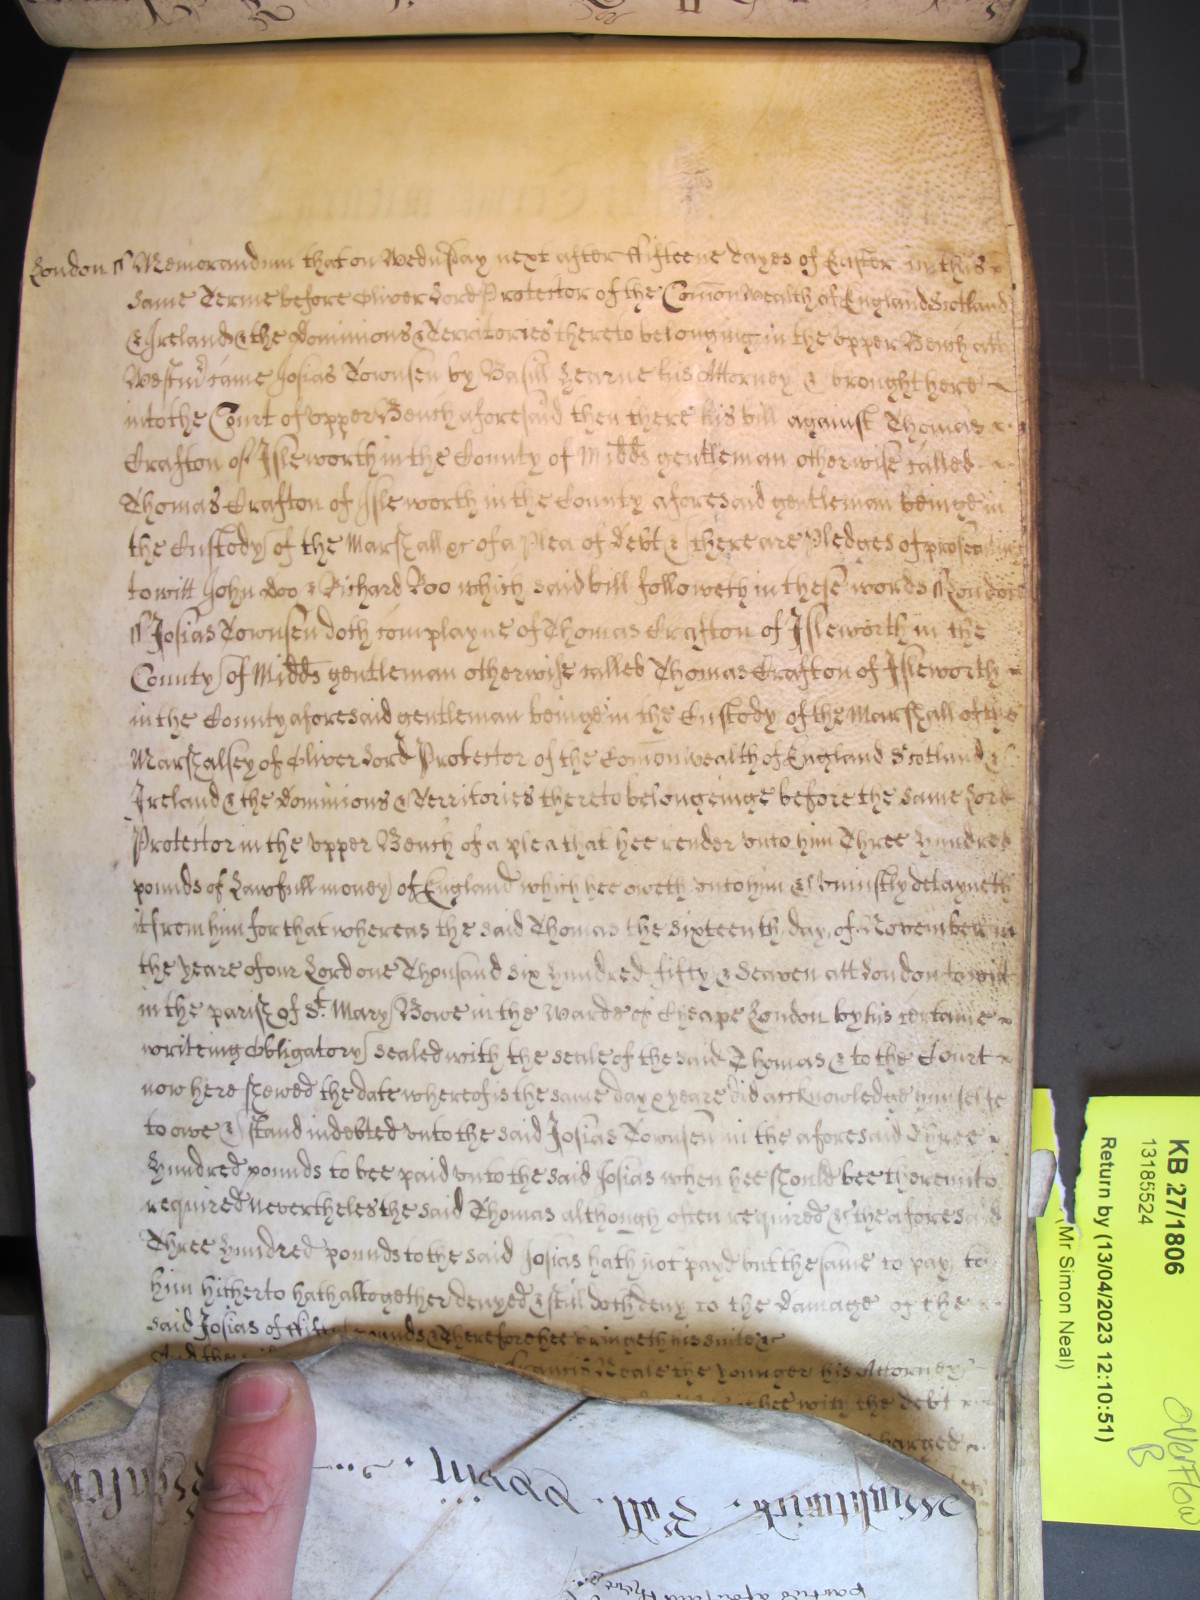 London ss Memorandum that on Wednsday next after ffifteene dayes of Easter in this
same Terme before Oliver Lord Protector of the Com̄onwealth of England Scotland
& Ireland & the Dominions & Territories thereto belonging in the vpper Bench att
Westmr came Josias Townsen by Basill Hearne his Attorney & brought here
into the Court of vpper Bench aforesaid then there his bill against Thomas
Crafton of Isleworth in the County of Midds gentleman otherwise called
Thomas Crafton of Isleworth in the County aforesaid gentleman beinge in
the Custody of the Marshall &c of a Plea of debt & there are Pledges of
to witt John Doo & Richard Roo which said bill followeth in these words ss London
ss Josias Townsen doth complayne of Thomas Crafton of Isleworth in the
County of Midds gentleman otherwise called Thomas Crafton of Isleworth
in the County aforesaid gentleman beinge in the Custody of the Marshall of the
Marshalsey of Oliver Lord Protector of the Com̄onwealth of England Scotland &
Ireland & the Dominions & Territories thereto belongeinge before the same Lord
Protector in the vpper Bench of a plea that hee render vnto him Three hundred
pounds of Lawfull money of England which hee oweth vnto him & vniustly detayneth
it from him for that whereas the said Thomas the sixteenth day of November in
the yeare of our Lord one Thousand six hundred fifty & seaven att London to witt
in the parish of St. Mary Bowe in the Warde of Cheape London by his certaine
writeing obligatory sealed with the seale of the said Thomas & to the Court
now here shewed the date whereof is the same day & yeare did acknowledge himselfe
to owe & stand indebted vnto the said Josias Townsen in the aforesaid Three
hundred pounds to bee paid vnto the said Josias when hee should bee thereunto
required nevertheles the said Thomas although often required &c the aforesaid
Three hundred pounds to the said Josias hath not payd but the same to pay to
him hitherto hath altogether denyed & still doth deny to the damage of the
said Josias of pounds & therefore hee bringeth his suite &c
And the Francis Beale the younger his Attorney
with the debt
charged
KB 27/1806
13185524
Return by (13/04/2023 12:10:51)
(Mr Simon Neal)
Overflow
B